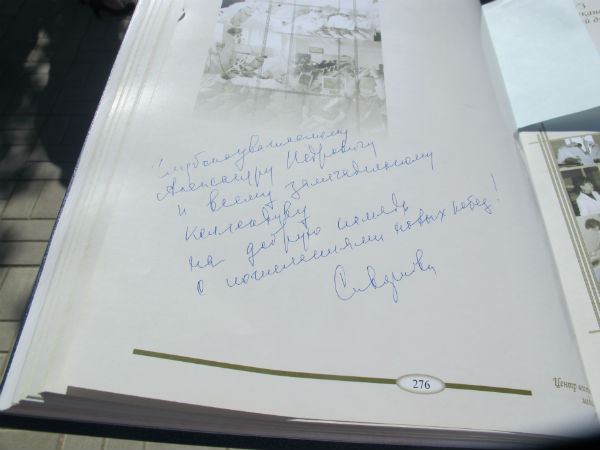 Глубокоуважаемому
Александру Петровичу
и всему замечательному
коллективу
на добрую память
с пожеланиями новых побед!
276
Центр